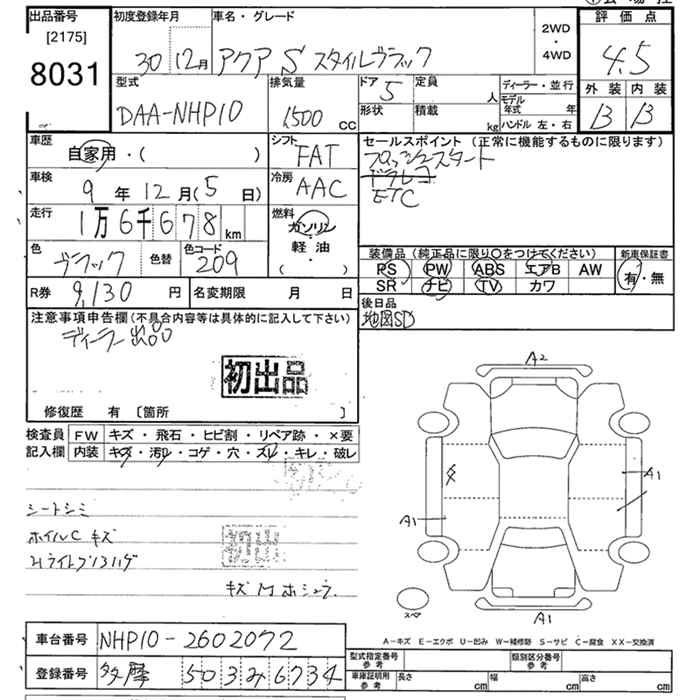 出品番号 [2175] 8031
初度登録年月 30年 12月
車名・グレード アクア S スタイルブラック
2WD・4WD
評価点 4.5
外装 B 内装 B
型式 DAA-NHP10
排気量 1500 cc
ドア 5
定員 人
形状
積載 kg
ディーラー・並行
モデル年式 年
ハンドル 左・右
車歴 自家用・( )
シフト FAT
セールスポイント (正常に機能するものに限ります)
プッシュスタート
ドラレコ
ETC
車検 9年 12月(5日)
冷房 AAC
走行 1万6千678km
燃料 ガソリン・軽油・( )
色 ブラック 色替
色コード 209
装備品 (純正品に限り〇をつけてください)
PS PW ABS エアB AW
SR ナビ TV カワ
新車保証書 有・無
R券 9,130円
名変期限 月 日
後日品
地図SD
注意事項申告欄(不具合内容等は具体的に記入して下さい)
ディーラー出品
初出品
修復歴 有 [箇所 ]
検査員記入欄
FW キズ・飛石・ヒビ割・リペア跡・×要
内装 キズ・汚れ・コゲ・穴・スレ・キレ・破レ
シートシミ
ホイルC キズ
初出品
キズ
A2
A1
A1
A1
スペア
A-キズ E-エクボ U-凹み W-補修跡 S-サビ C-腐食 XX-交換済
車台番号 NHP10-2602072
登録番号 多摩 503み6734
型式指定番号 参考
類別区分番号 参考
車庫証明用 参考 長さ cm 幅 cm 高さ cm